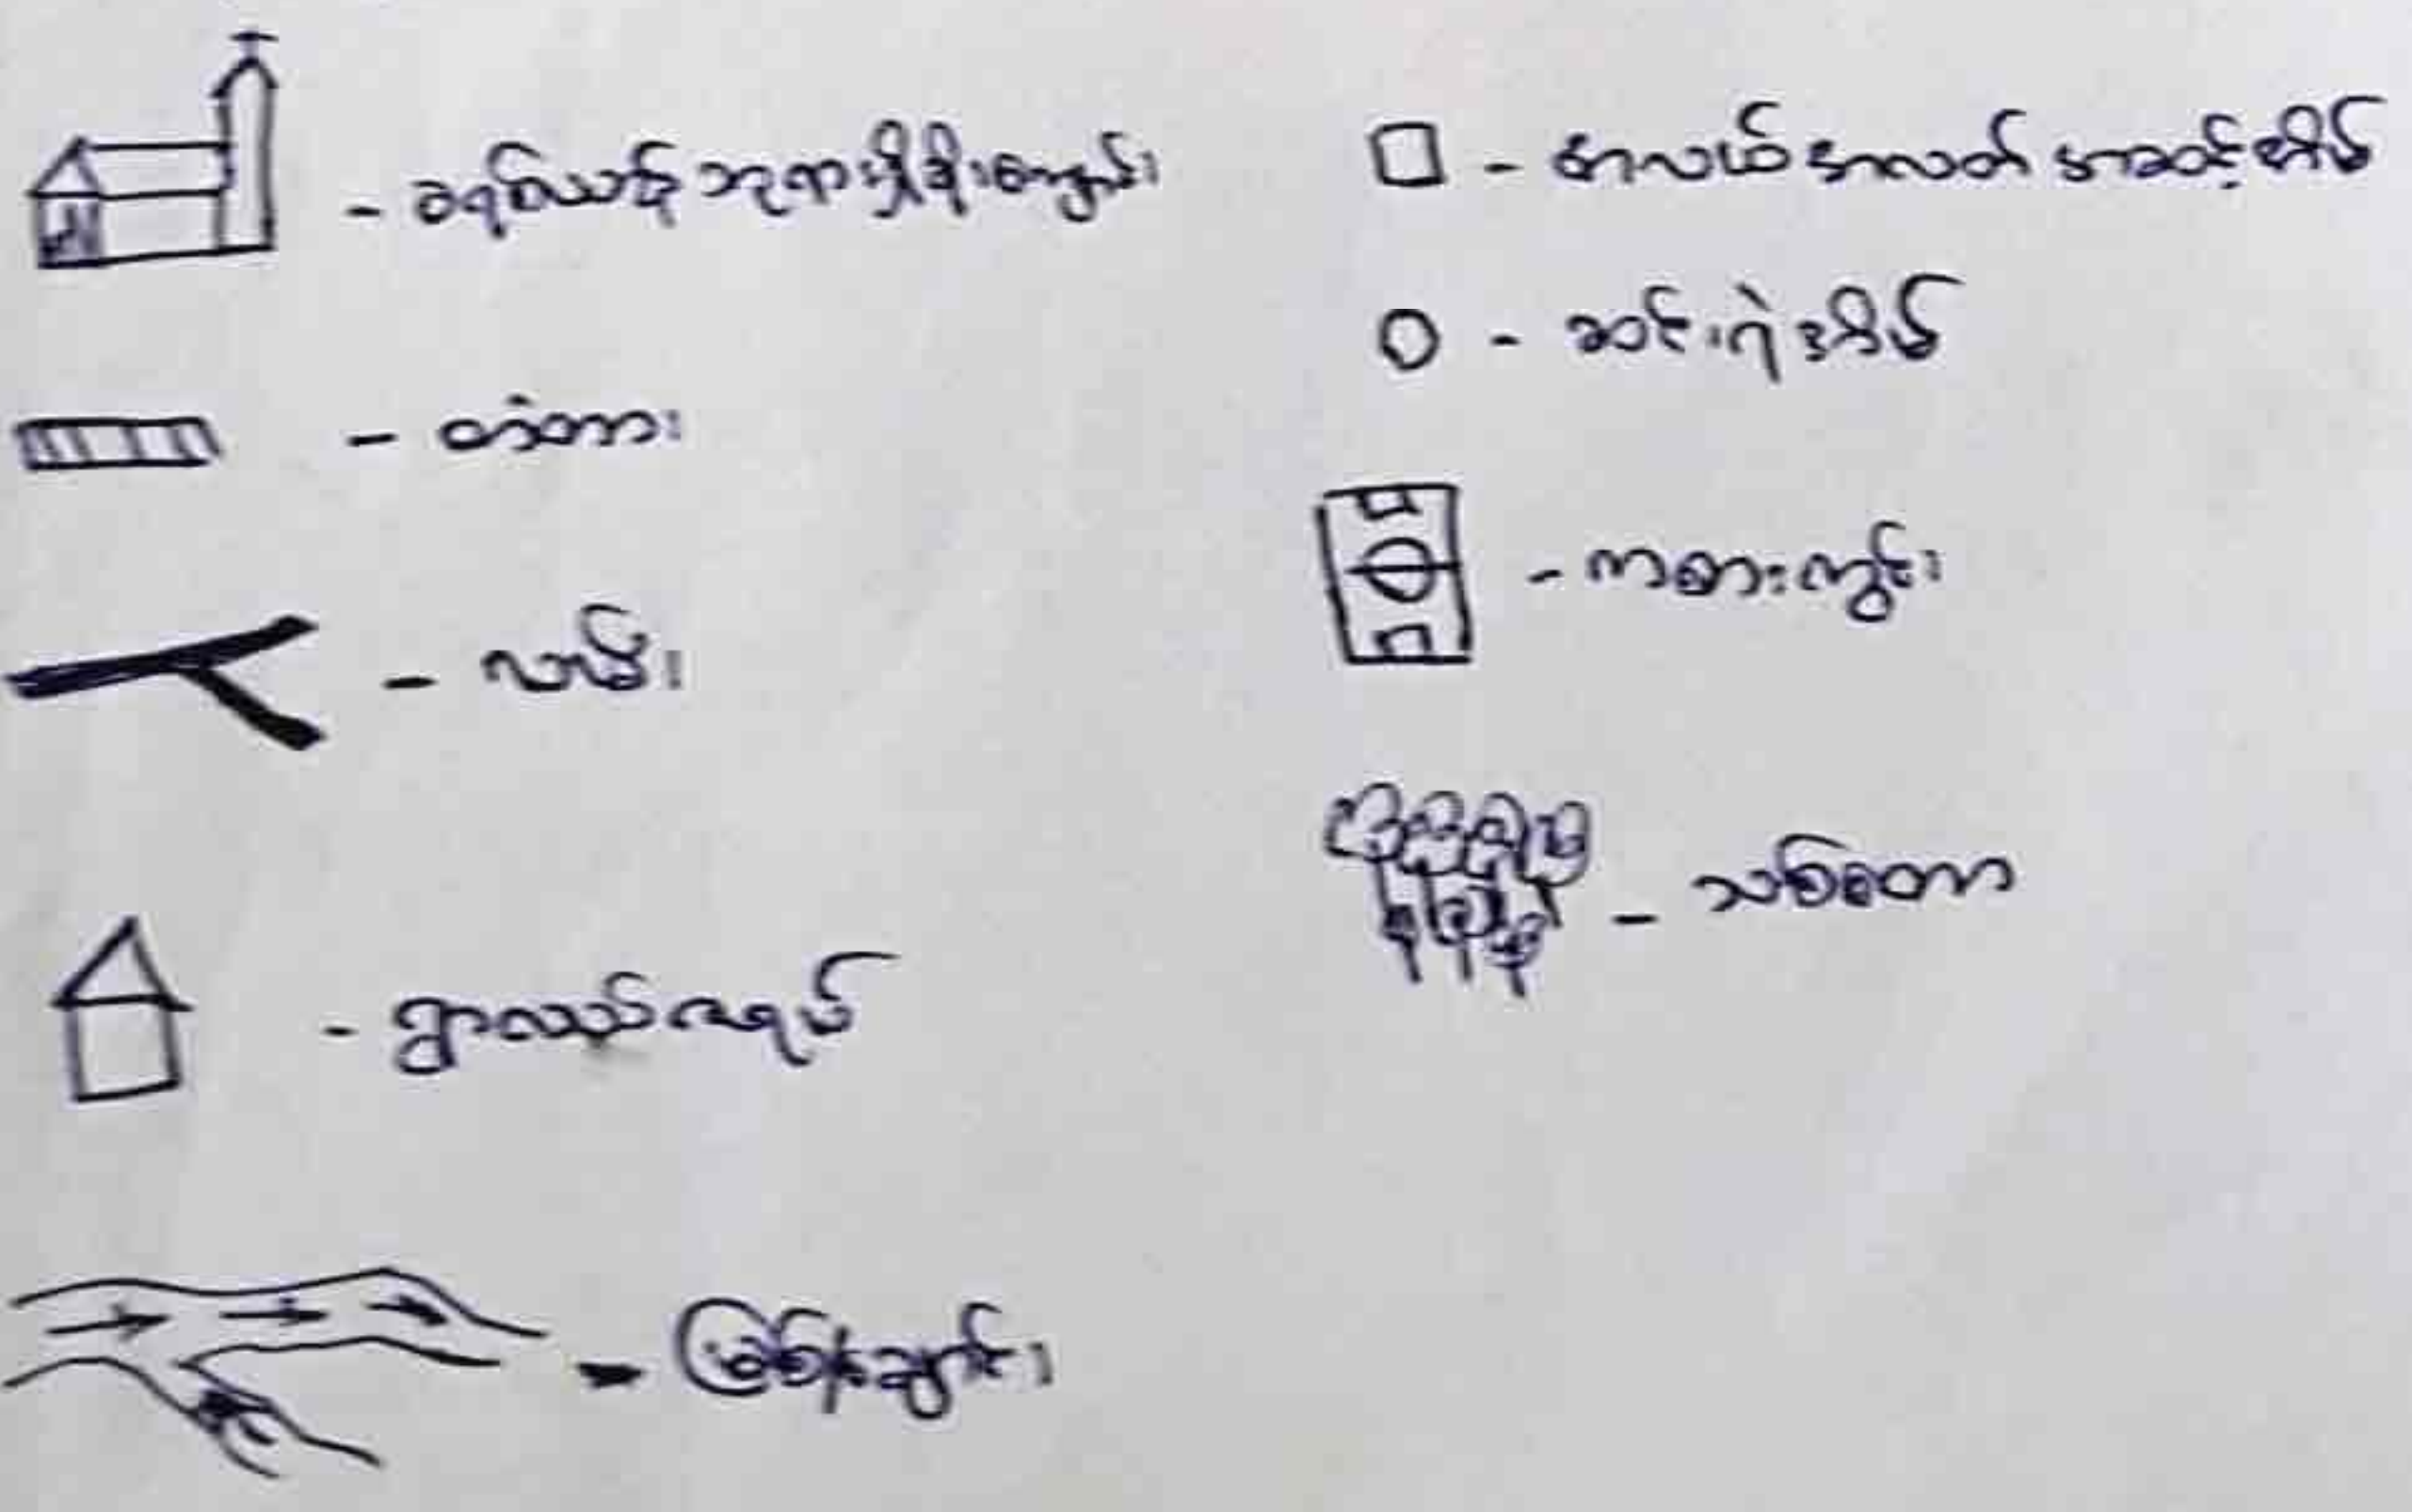 - ခရစ်ယာန် ဘုရားရှိခိုးကျောင်း
- တံတား
- လမ်း
- ရွာလယ်ဇရပ်
- မြစ်နှင့်ချောင်း
- အလယ်အလတ်အဆင့်အိမ်
- ဆင်းရဲအိမ်
- ကစားကွင်း
- သစ်တော